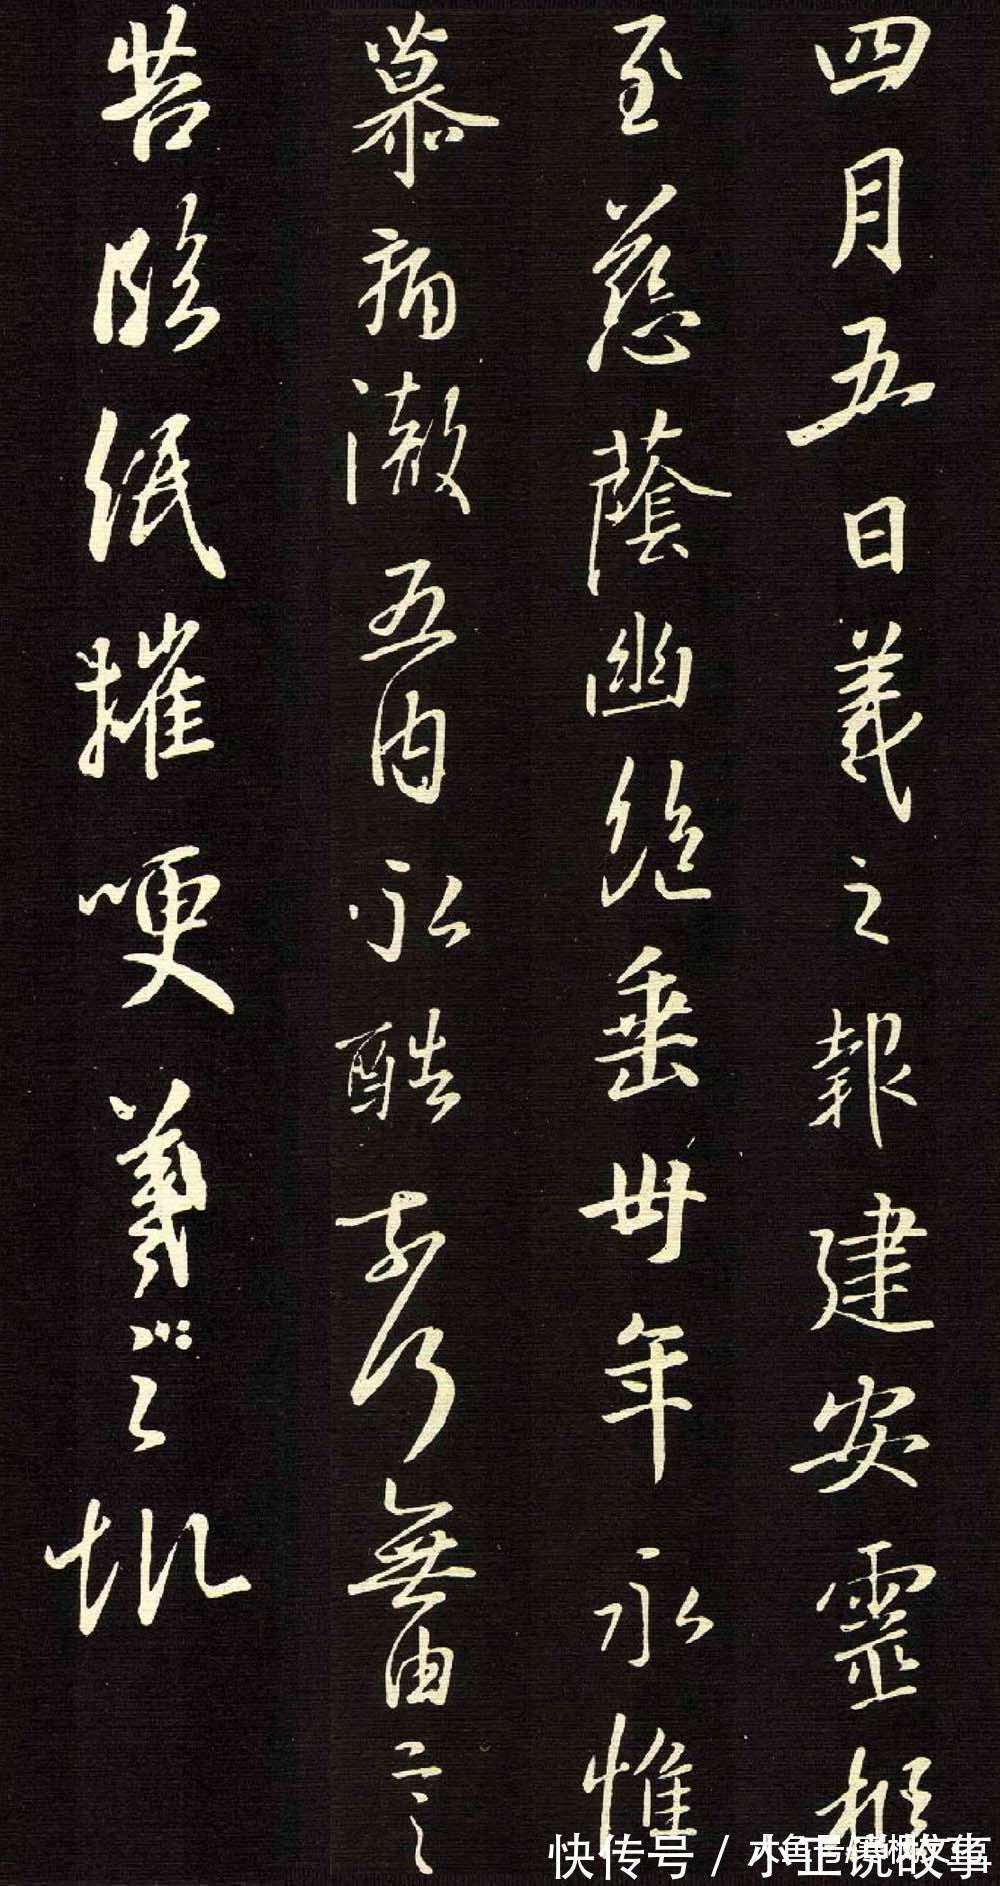 四月五日羲之報建安靈柩
至慈蔭幽絕垂卅年永惟
慕痛澈五内永酷奈何無由言
苦臨紙摧哽羲之報
快传号 / 小正说故事